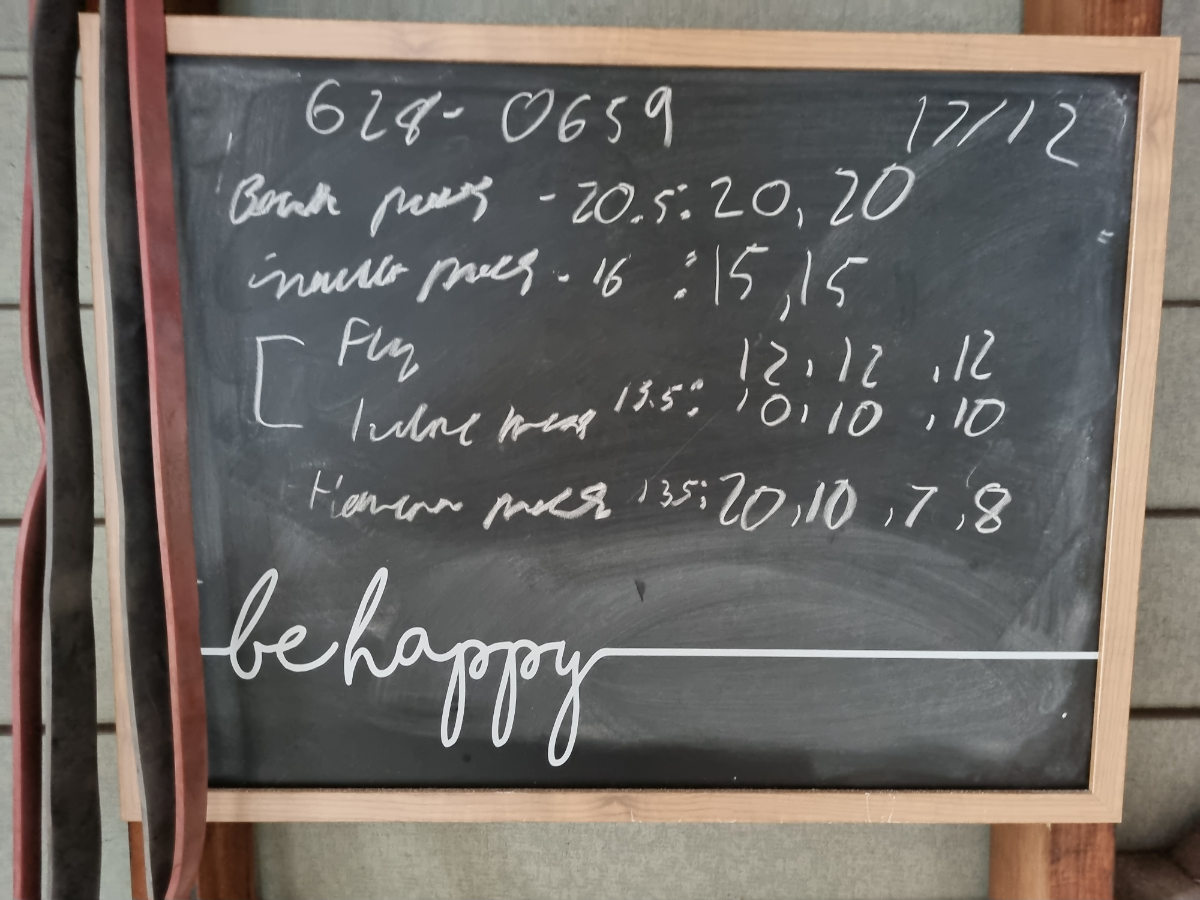 628-0659 17/12
Bench press - 20.5: 20, 20
incline press - 16 : 15, 15
Fly 12, 12, 12
Incline press 13.5: 10, 10, 10
press 13.5: 20, 10, 7, 8
be happy